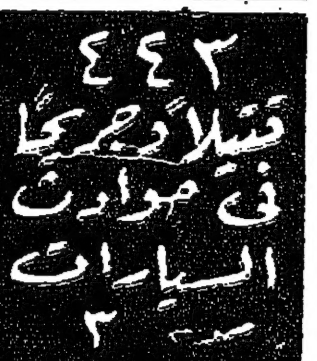 ٤٤٣
قتيلاً وجريحاً
فى حوادث
السيارات
ص ٣